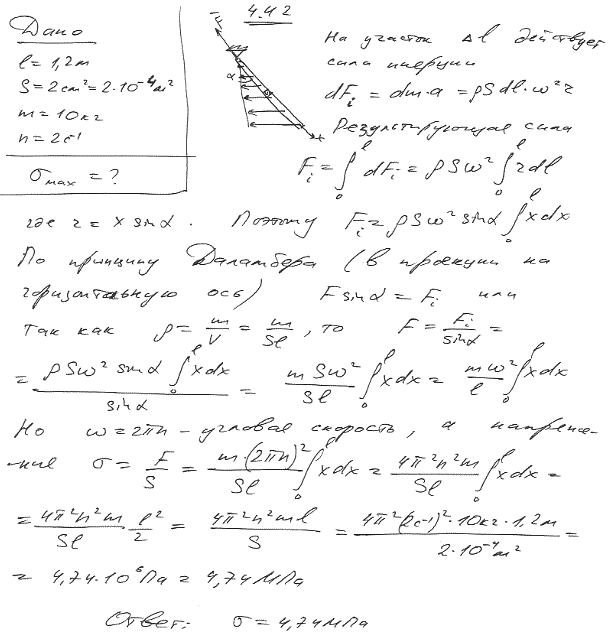 4.42
Дано
l = 1,2м
S = 2см² = 2·10⁻⁴м²
m = 10кг
n = 2с⁻¹
σmax = ?
F
α
x
На участок Δl действует
сила инерции
dFi = dm·a = ρSdl·ω²r
Результирующая сила
Fi = ∫₀ˡ dFi = ρSω² ∫₀ˡ rdl
где r = x sinα. Поэтому Fi = ρSω² sinα ∫₀ˡ xdx
По принципу Даламбера (в проекции на
горизонтальную ось) F sinα = Fi или
так как ρ = m/V = m/Sl, то F = Fi/sinα =
= ρSω² sinα ∫₀ˡ xdx / sinα = mSω²/Sl ∫₀ˡ xdx = mω²/l ∫₀ˡ xdx
Но ω = 2πn – угловая скорость, а напряже-
ние σ = F/S = m·(2πn)²/Sl ∫₀ˡ xdx = 4π²n²m/Sl ∫₀ˡ xdx =
= 4π²n²m/Sl · l²/2 = 4π²n²ml/S = 4π²(2с⁻¹)²·10кг·1,2м / 2·10⁻⁴м² =
= 4,74·10⁶Па = 4,74МПа
Ответ: σ = 4,74МПа